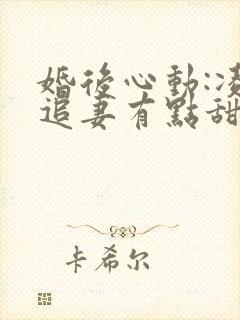 婚後心動:凌
追妻有點甜
卡希尔